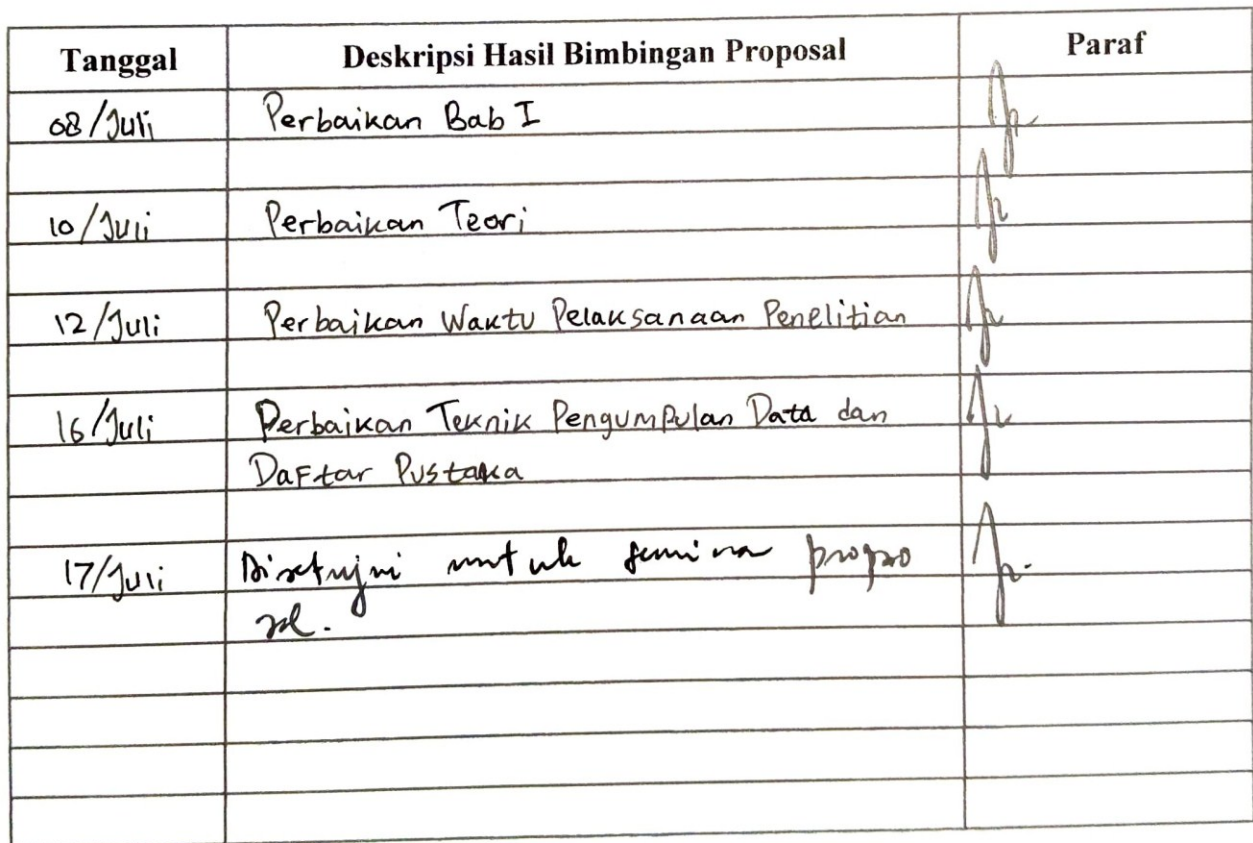 Tanggal Deskripsi Hasil Bimbingan Proposal Paraf
08/Juli Perbaikan Bab I
10/Juli Perbaikan Teori
12/Juli Perbaikan Waktu Pelaksanaan Penelitian
16/Juli Perbaikan Teknik Pengumpulan Data dan
Daftar Pustaka
17/Juli Disetujui untuk seminar propo
sal.